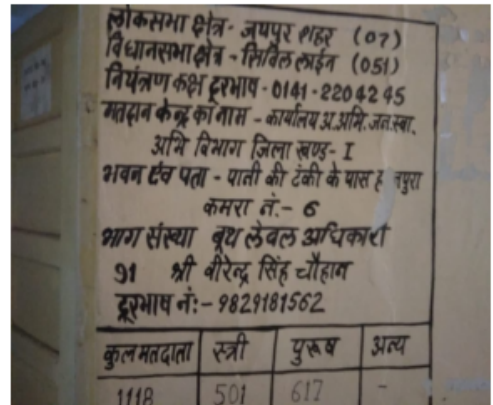 लोकसभा क्षेत्र- जयपुर शहर (07)
विधानसभा क्षेत्र - सिविल लाईन (051)
नियंत्रण कक्ष दूरभाष - 0141 - 2204245
मतदान केन्द्र का नाम - कार्यालय अ.अभि. जन.स्वा.
अभि विभाग जिला खण्ड - I
भवन एंव पता - पानी की टंकी के पास
कमरा नं.- 6
भाग संख्या बूथ लेवल अधिकारी
91 श्री वीरेन्द्र सिंह चौहान
दूरभाष नं:- 9829181562
कुल मतदाता स्त्री पुरूष अन्य
1118 501 617 -